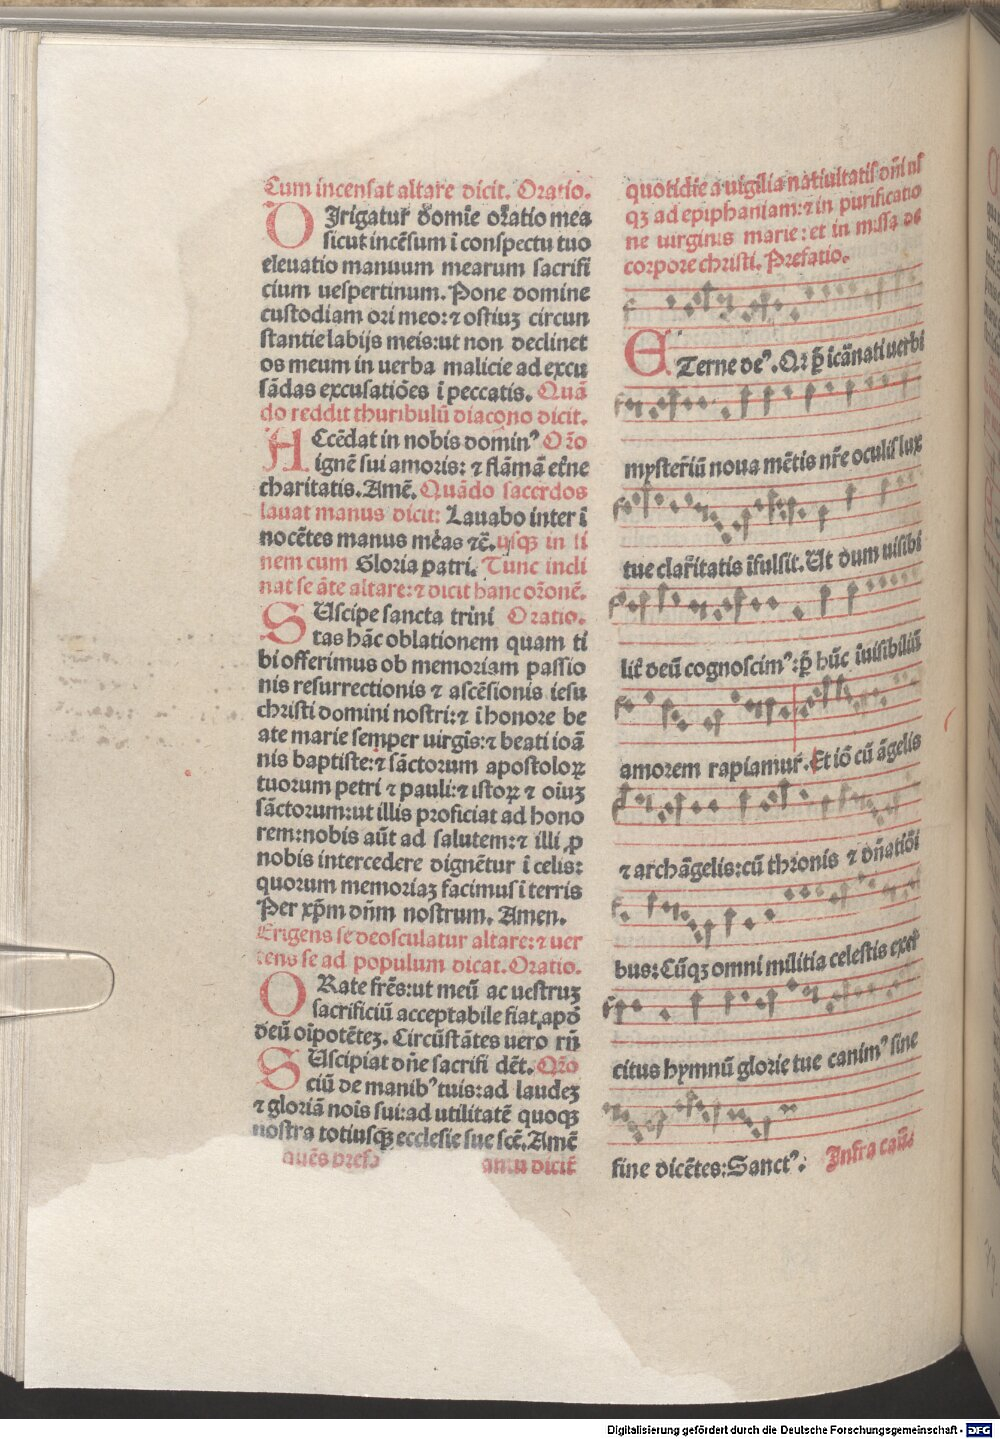 Cum incensat altare dicit. Oratio.
DIrigatur̃ dõmie oratio mea
sicut incẽsum ĩ conspectu tuo
eleuatio manuum mearum sacrifi
cium uespertinum. Pone domine
custodiam ori meo: ⁊ ostiuʒ circun
stantie labijs meis: ut non declinet
os meum in uerba malicie ad excu
sãdas excusatiões ĩ peccatis. Quã
do reddit thuribulũ diacono dicit.
ACcẽdat in nobis dominꝰ Orõ
ignẽ sui amoris: ⁊ flãmã et̃ne
charitatis. Amẽ. Quãdo sacerdos
lauat manus dicit: Lauabo inter ĩ
nocẽtes manus mẽas ⁊c̃. usqʒ in fi
nem cum Gloria patri. Tunc incli
nat se ãte altare: ⁊ dicit hanc orõnẽ.
SUscipe sancta trini Oratio.
tas hãc oblationem quam ti
bi offerimus ob memoriam passio
nis resurrectionis ⁊ ascẽsionis iesu
christi domini nostri: ⁊ ĩ honore be
ate marie semper uirgis̃: ⁊ beati ioã
nis baptiste: ⁊ sãctorum apostoloꝝ
tuorum petri ⁊ pauli: ⁊ istoꝝ ⁊ oiuʒ
sãctorum: ut illis proficiat ad hono
rem: nobis aũt ad salutem: ⁊ illi ꝓ
nobis intercedere dignẽtur ĩ celis:
quorum memoriaʒ facimus ĩ terris
Per xp̃m dñm nostrum. Amen.
Erigens se deosculatur altare: ⁊ uer
tens se ad populum dicat. Oratio.
ORate frẽs: ut meũ ac uestruʒ
sacrificiũ acceptabile fiat, apõ
deũ oĩpotẽteʒ. Circũstãtes uero rñ
SUscipiat dñe sacrifi dẽt. Orõ
ciũ de manibꝰ tuis: ad laudeʒ
⁊ gloriã nois sui: ad utilitatẽ quoqʒ
nostra totiusqʒ ecclesie sue scẽ. Amẽ
quotidie a uigilia natiuitatis dñi us
qʒ ad epiphaniam: ⁊ in purificatio
ne uirginis marie: et in missa de
corpore christi. Prefatio.
ETerne deꝰ. Qꝛ p̃ ĩcãnati uerbi
mysteriũ noua mẽtis nr̃e oculis lux
tue clar̃itatis ĩfulsit. Ut dum uisibi
lit̃ deũ cognoscimꝰ: p̃ hũc ĩuisibiliũ
amorem rapiamur̃. Et iõ cũ ãgelis
⁊ archãgelis: cũ thronis ⁊ dñatiõi
bus: Cũqʒ omni militia celestis exer̃
citus hymnũ glorie tue canimꝰ sine
fine dicẽtes: Sanctꝰ. Infra
Digitalisierung gefördert durch die Deutsche Forschungsgemeinschaft - DFG